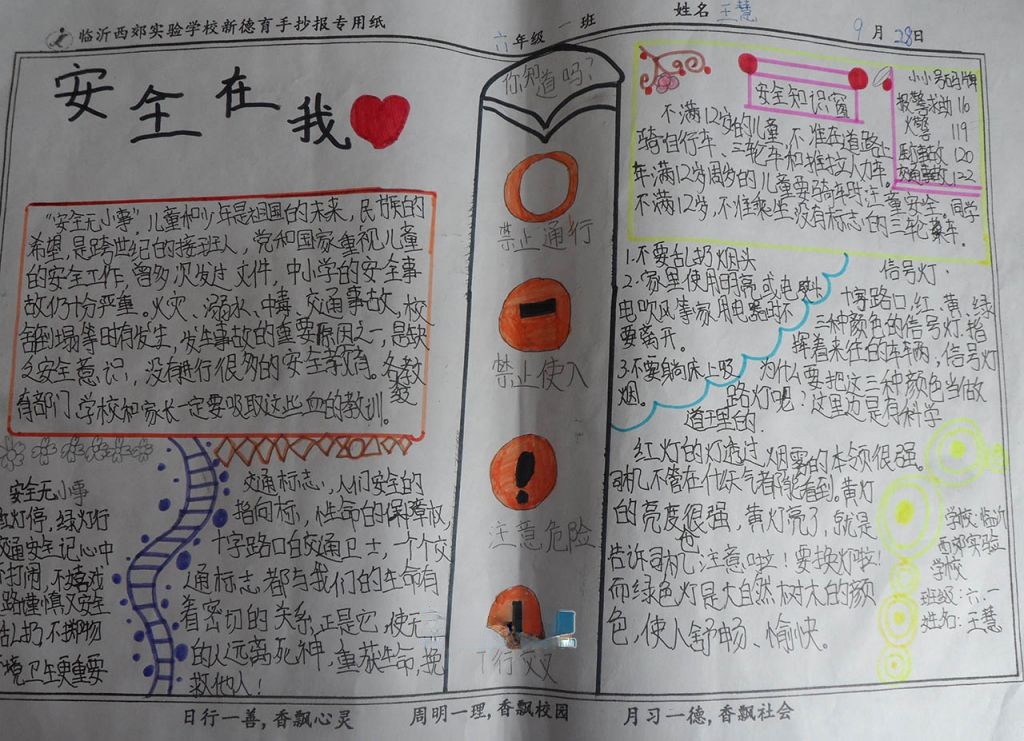 临沂西郊实验学校新德育手抄报专用纸
六年级 一 班
姓名 王慧
9 月 28 日
安全在我
"安全无小事"儿童和少年是祖国的未来，民族的
希望，是跨世纪的接班人，党和国家重视儿童
的安全工作，曾多次发过文件，中小学的安全事
故仍十分严重。火灾、溺水、中毒、交通事故，校
舍倒塌等时有发生，发生事故的重要原因之一，是缺
乏安全意识，没有进行很多的安全教育。各教
育部门、学校和家长一定要吸取这些血的教训。
安全无小事
红灯停，绿灯行
交通安全记心中
打闹，不嬉戏
路谨慎又安全
乱扔不掷物
境卫生更重要
交通标志，人们安全的
指向标，性命的保障权，
十字路口白交通卫士，一个个交
通标志，都与我们的生命有
着密切的关系，正是它，使无
的人远离死神，重获生命，挽
救他人！
你知道吗？
禁止通行
禁止使入
注意危险
T行交叉
安全知识窗
不满12岁的儿童，不准在道路上
骑自行车、三轮车和推拉人力车。
车满12岁周岁的儿童要骑车时注意安全。同学
不满12岁，不准乘坐没有标志的三轮乘车。
小小号码牌
报警求助 110
火警 119
120
交通事故 122
1.不要乱扔烟头
2.家里使用明亮或电
电吹风等家用电器时不
要离开。
3.不要躺床上吸
烟。
信号灯.
十字路口，红、黄、绿
三种颜色的信号灯，指
挥着来往的车辆，信号灯
为什么要把这三种颜色当做
路灯呢？这里边是有科学
道理的.
红灯的灯透过烟雾的本领很强。
司机不管在什么天气都能看到。黄灯
的亮度也很强，黄灯亮了，就是
告诉司机：注意啦！要换灯啦！
而绿色灯是大自然树木的颜
色，使人舒畅、愉快。
学校：临沂
西郊实验
学校
班级：六.一
姓名：王慧
日行一善，香飘心灵
周明一理，香飘校园
月习一德，香飘社会